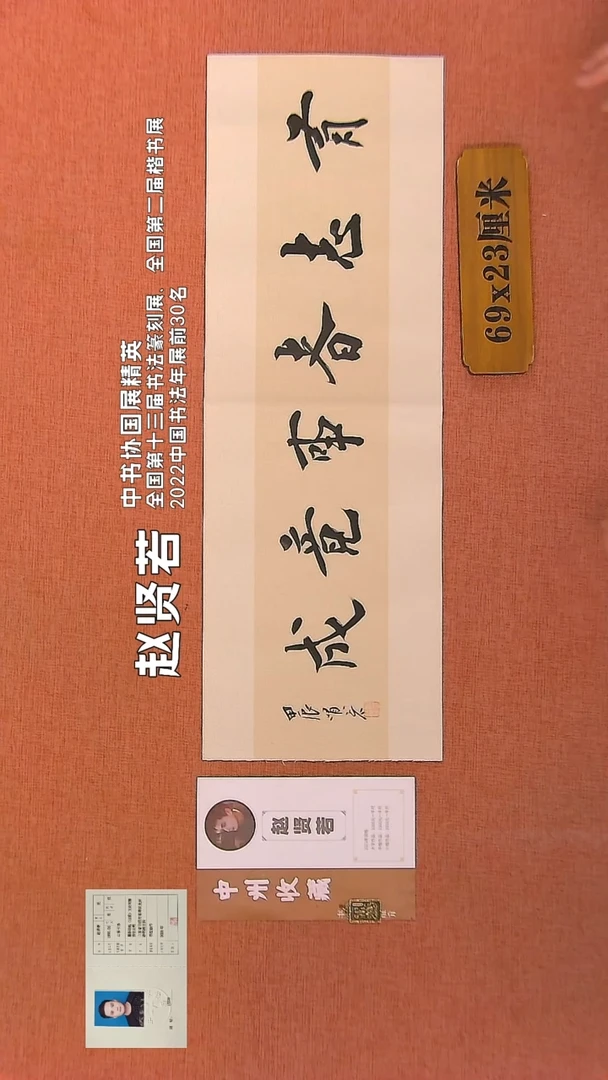 赵贤若
中书协国展精英
全国第十三届书法篆刻展、全国第二届楷书展
2022中国书法年展前30名
有志者事竟成
69x23厘米
赵贤若
中州收藏